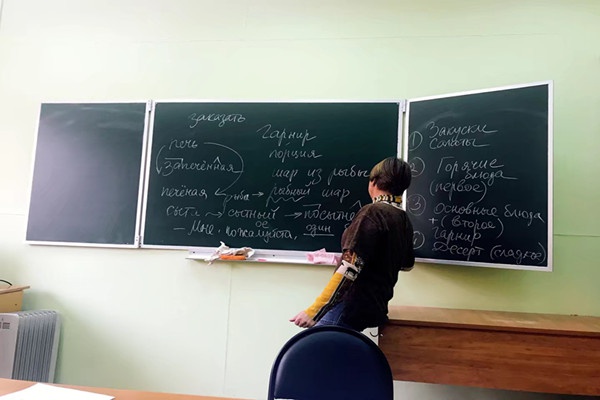 заказать
печь
Запечённая
печёная
Гарнир
порция
шар из рыбы
рыба → рыбный шар
сыт → сытный → посытне
ое
— Мне, пожалуйста, один
① Закуски
Салаты
② Горячие
блюда
(первое)
③ Основные блюда
+ (второе)
гарнир
④ Десерт (сладкое)